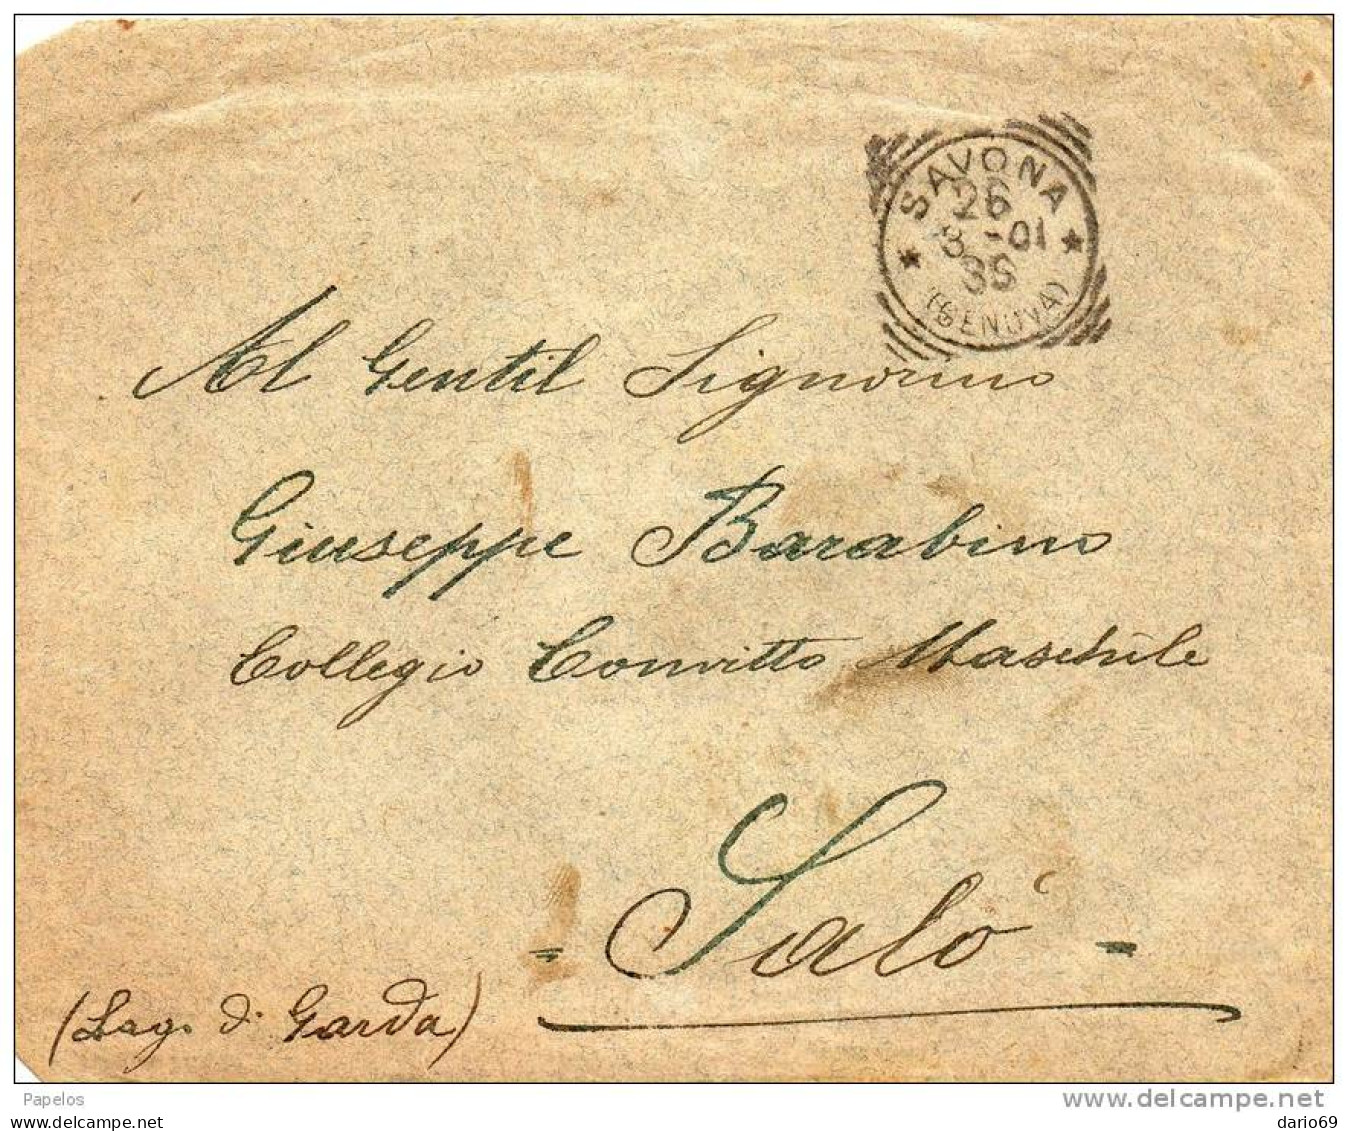 SAVONA
26
8 -01
3S
(GENOVA)
Al Gentil Signorino
Giuseppe Barabino
Collegio Convitto Maschile
= Salò =
(Lago di Garda)
Papelos
www.delcampe.net
ilmercatinodellecollezioni.com
dario69